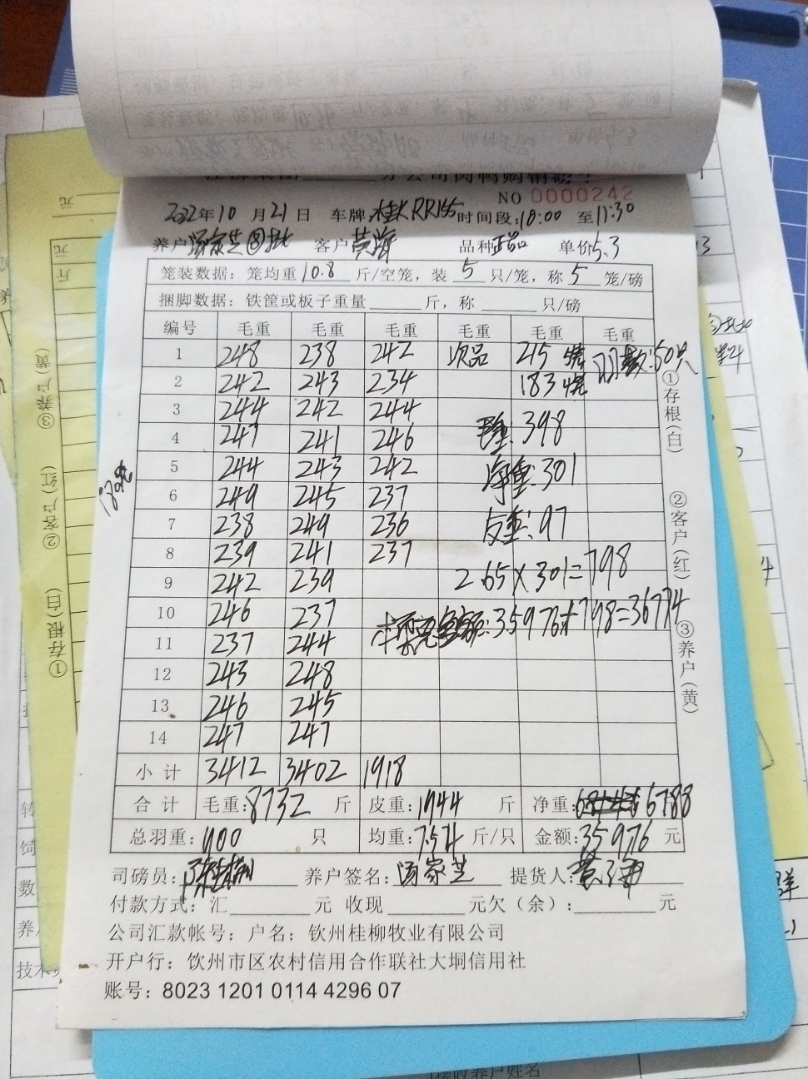 NO 0000242
2022年10月21日 车牌 桂KRR155 时间段:10:00 至11:30
养户 汤家芝 客户 黄海 品种 正品 单价5.3
笼装数据:笼均重10.8斤/空笼,装5只/笼,称5笼/磅
捆脚数据:铁筐或板子重量 斤,称 只/磅
编号 毛重 毛重 毛重 毛重 毛重 毛重
1 248 238 242 次品 215 羽数:50只
2 242 243 234 183
3 244 242 244
4 247 241 246 毛重:398
5 244 243 242 净重:301
6 249 245 237
7 238 249 236 皮重:97
8 239 241 237
9 242 239 2.65×301=798
10 246 237 35976+798=36774
11 237 244
12 243 248
13 246 245
14 247 247
小计 3412 3402 1918
合计 毛重:8732 斤 皮重:1944 斤 净重:6788
总羽重:900 只 均重:7.54斤/只 金额:35976元
司磅员: 养户签名:汤家芝 提货人:黄海
付款方式:汇 元 收现 元欠(余): 元
公司汇款帐号:户名:钦州桂柳牧业有限公司
开户行:饮州市区农村信用合作联社大垌信用社
账号:8023 1201 0114 4296 07
①存根(白)
②客户(红)
③养户(黄)
③养户(黄)
②客户(红)
①存根(白)